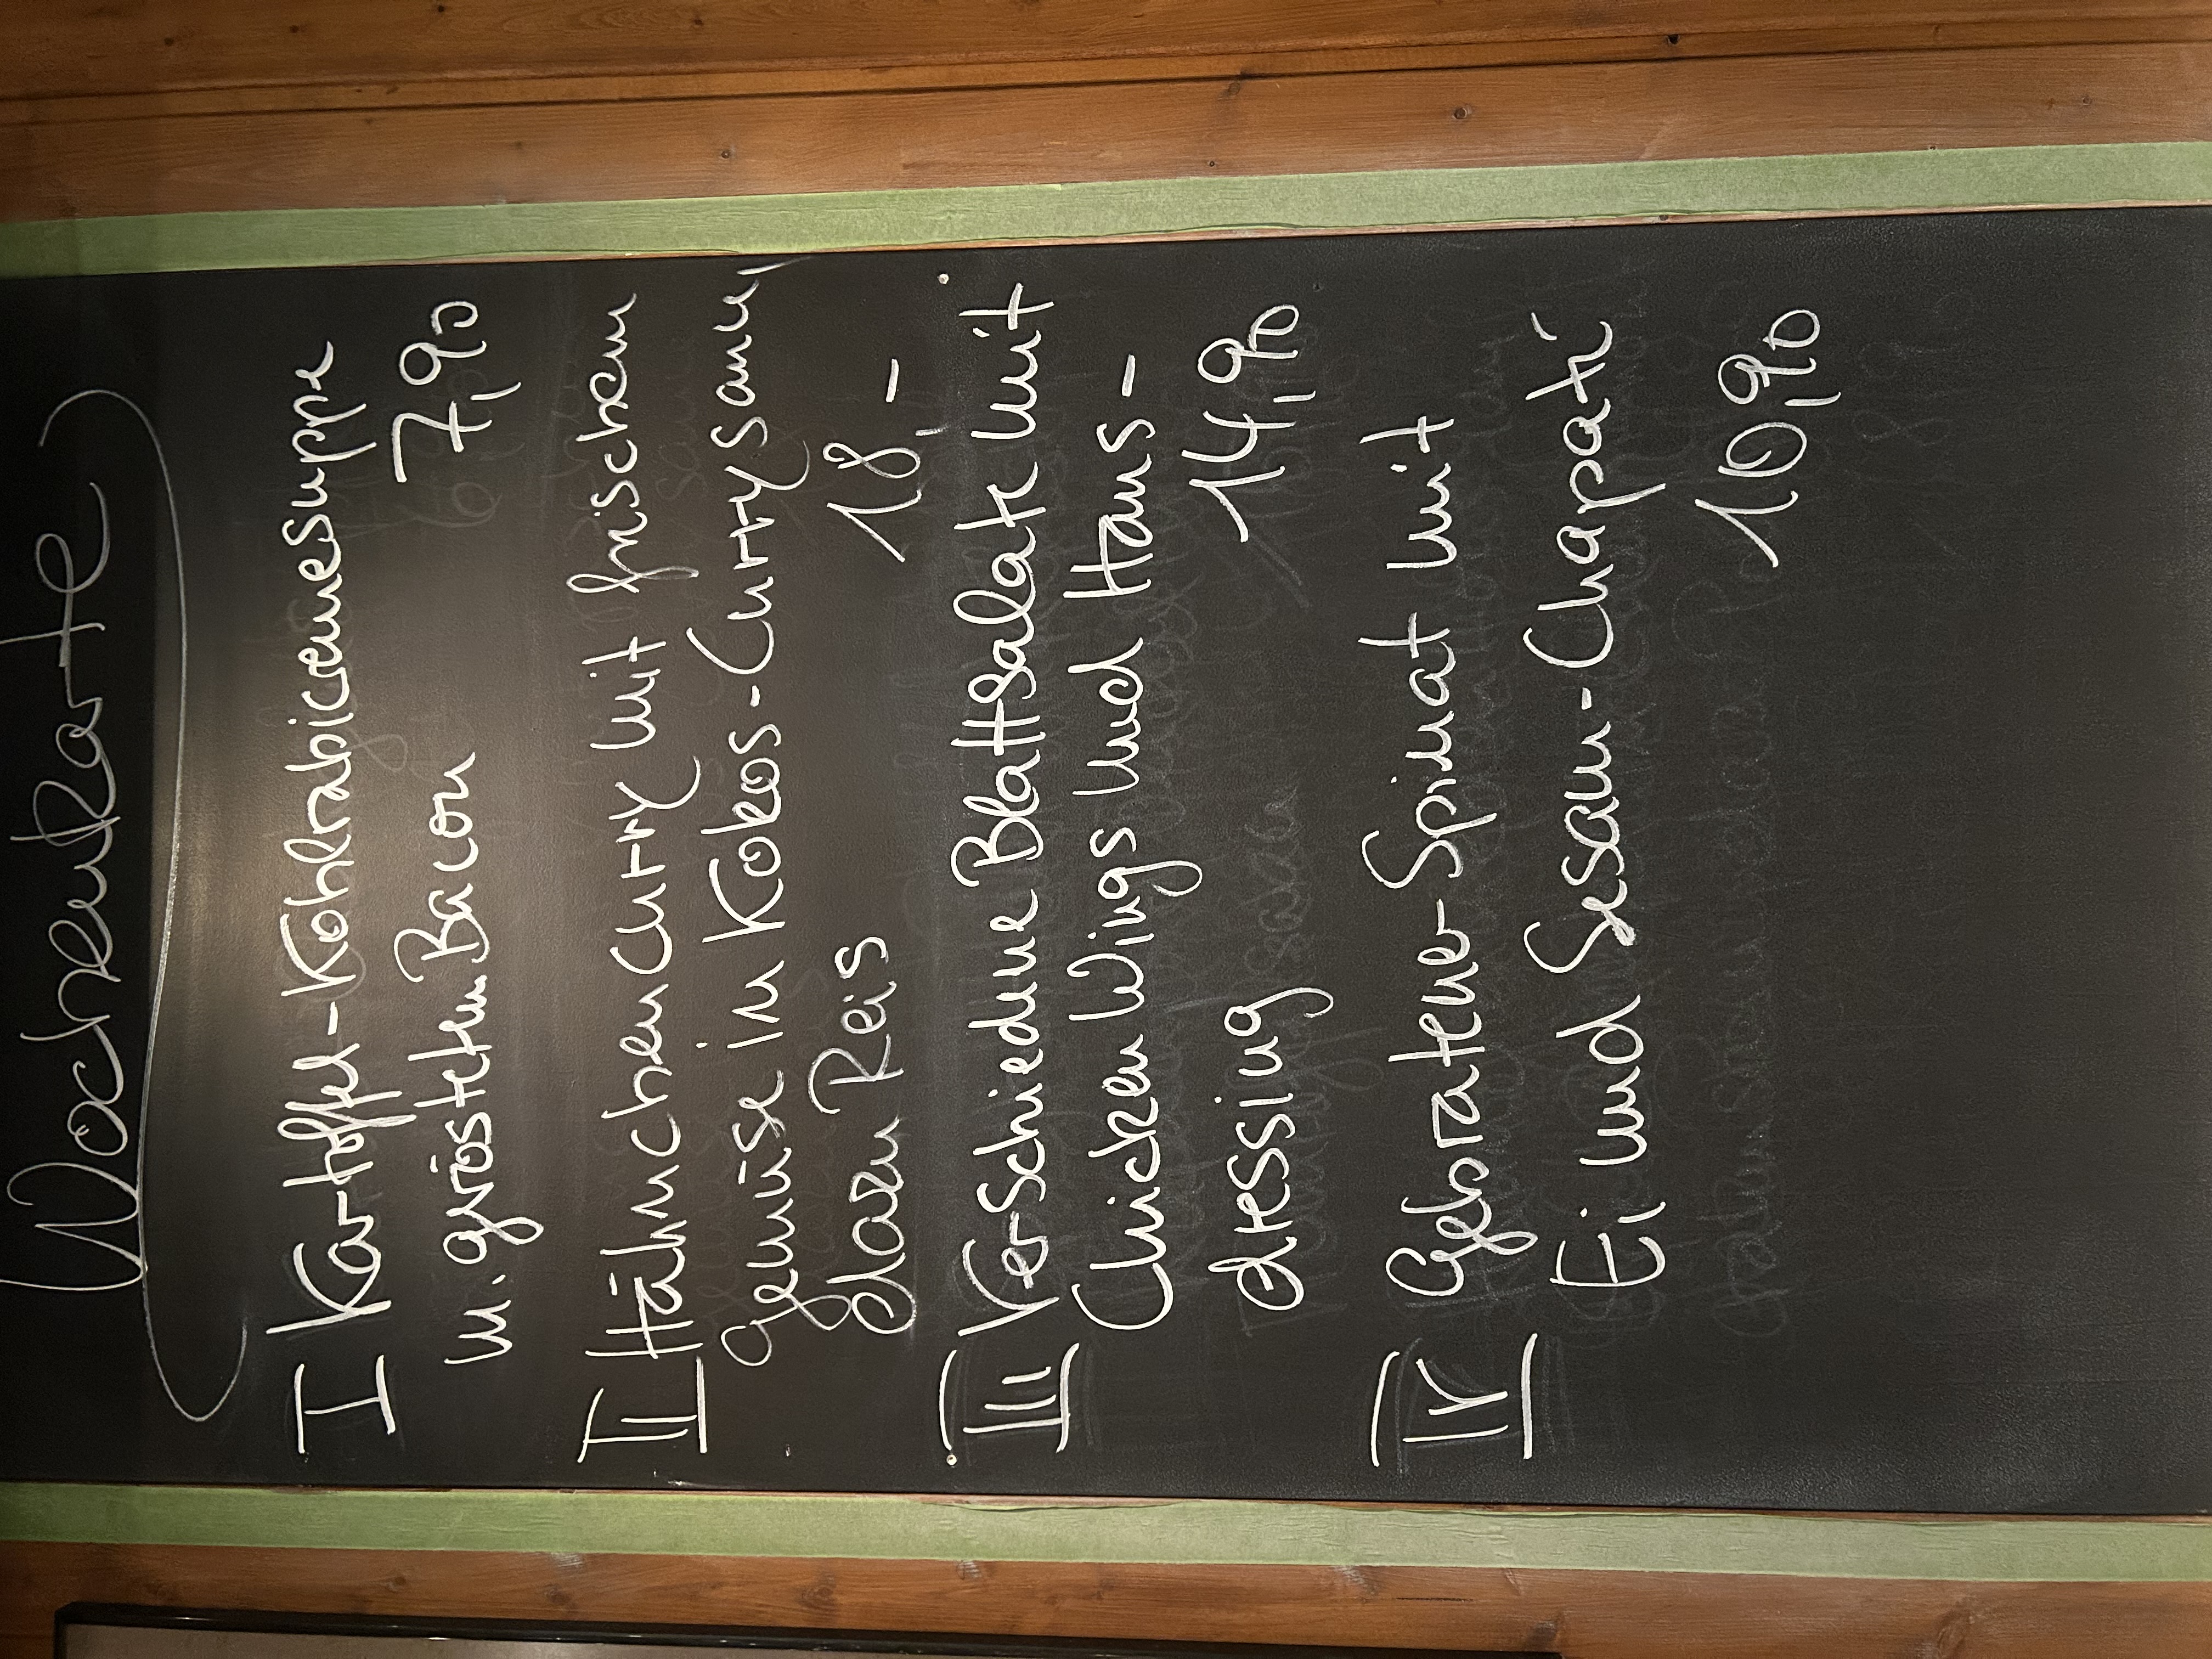 Wochenkarte
I Kartoffel-Kohlrabicremesuppe
m. gerösteten Bacon 7,90
II Hähnchencurry mit frischem
Gemüse in Kokos-Currysauce,
dazu Reis 18,-
III Verschiedene Blattsalate mit
Chicken Wings und Haus-
dressing 14,90
IV Gebratener Spinat mit
Ei und Sesam-Chapati
10,90